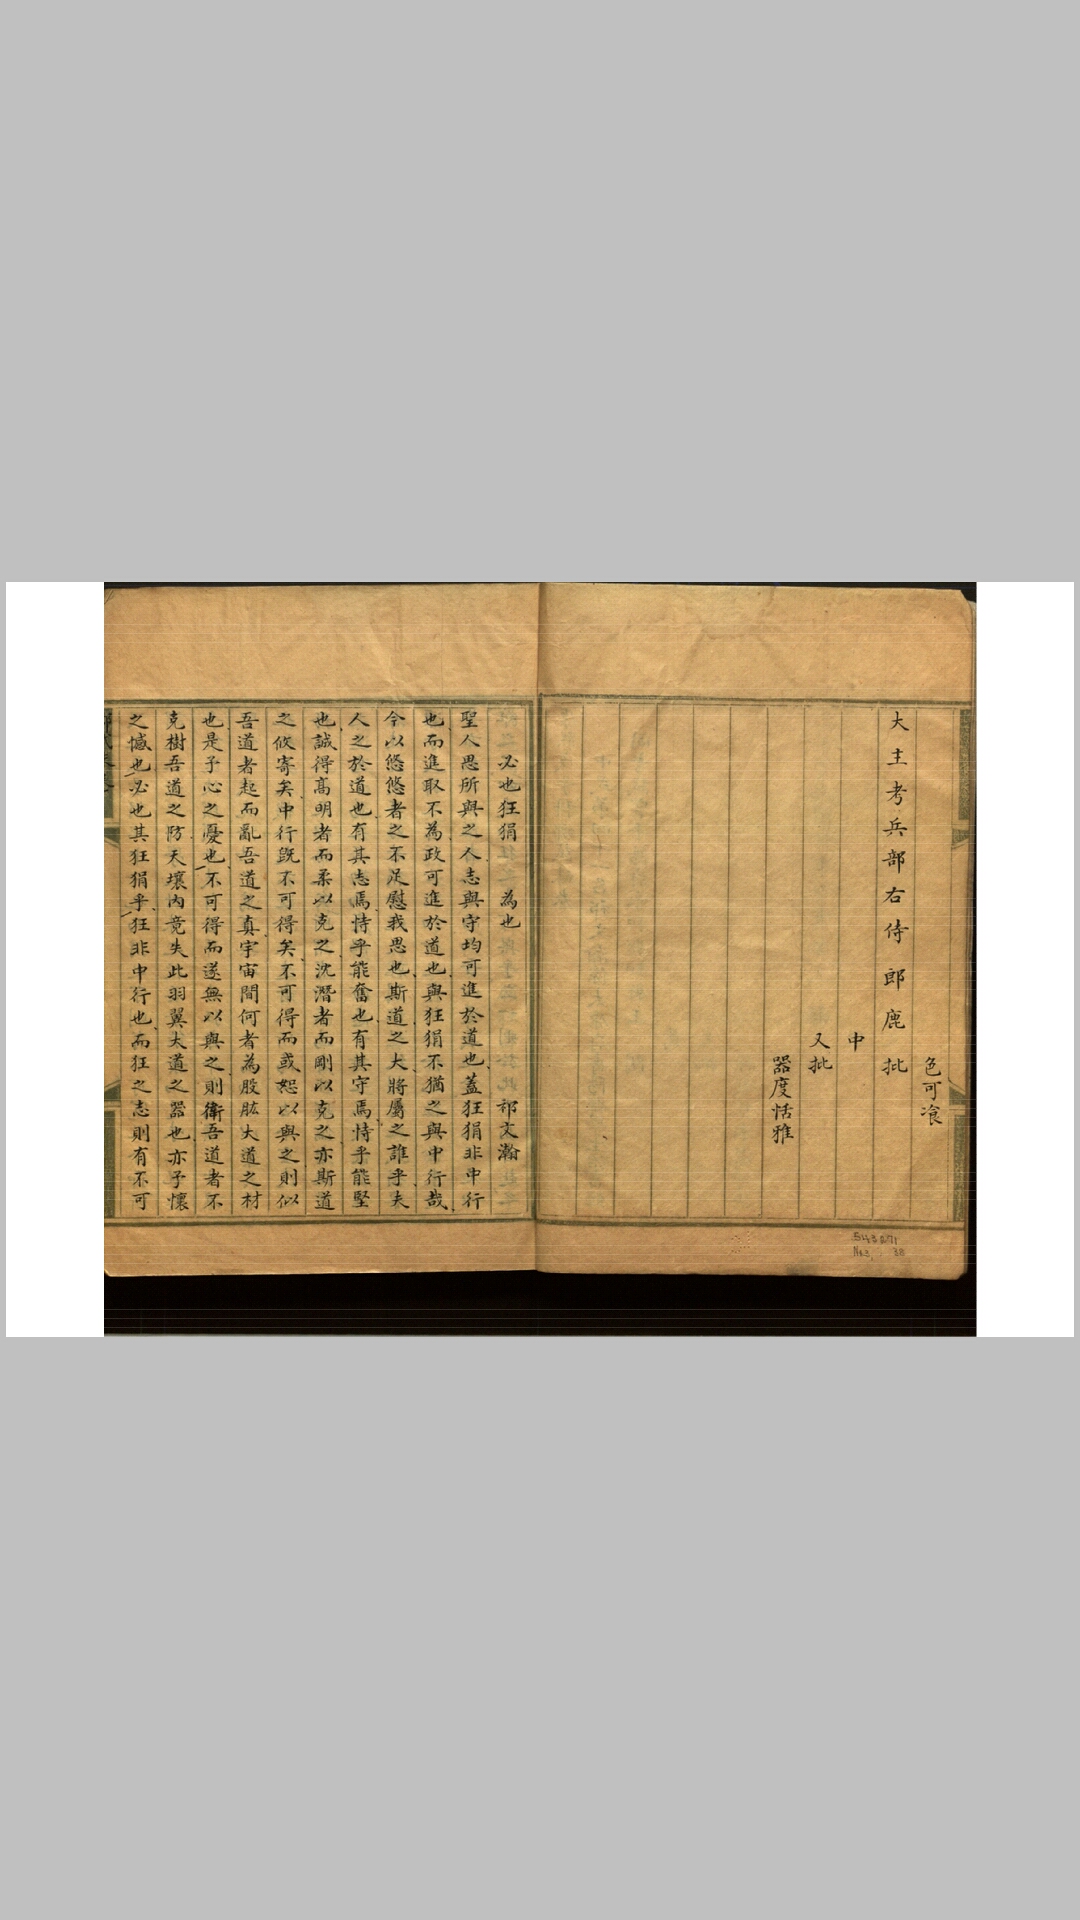 色可飡
大主考兵部右侍郎鹿 批
中
又批
器度恬雅
必也狂狷 為也 祁文瀚
聖人思所與之人志與守均可進於道也蓋狂狷非中行
也而進取不為政可進於道也與狂狷不猶之與中行哉
今以悠悠者之不足慰我思也斯道之大將屬之誰乎夫
人之於道也有其志焉恃乎能奮也有其守焉恃乎能堅
也誠得高明者而柔以克之沈潛者而剛以克之亦斯道
之攸寄矣中行既不可得矣不可得而或恕以與之則似
吾道者起而亂吾道之真宇宙間何者為股肱大道之材
也是予心之憂也不可得而遂無以與之則衛吾道者不
克樹吾道之防天壤內竟失此羽翼大道之器也亦予懷
之憾也必也其狂狷乎狂非中行也而狂之志則有不可